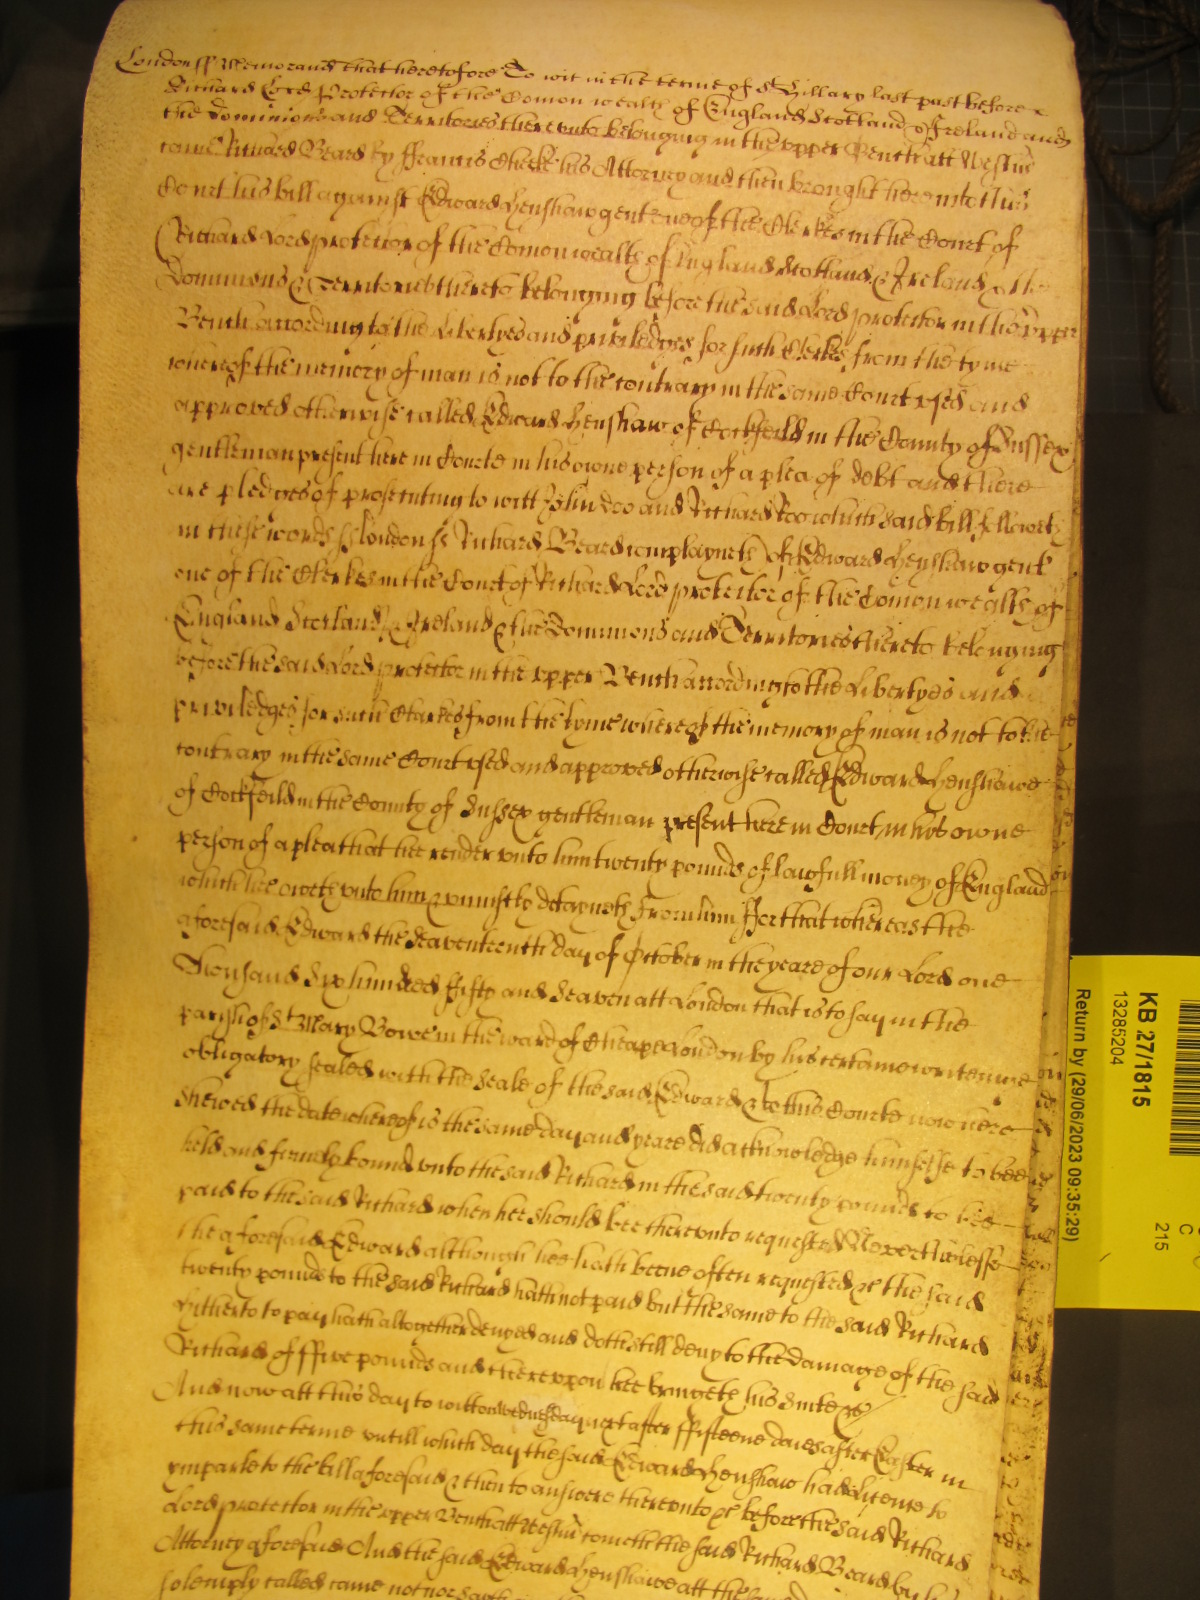 London ss Memorand that heretofore To wit in the terme of St Hillary last past before
Richard Lord Protector of the Comon wealth of England Scotland & Ireland and
the dominions and Territories there vnto belonging in the vpper Bench att Westmr
came Richard Beard by Francis Cheeke his Attorney and then brought here into this
Court his bill against Edward Henshaw gent one of the Clerkes in the Court of
Richard Lord protector of the Comon wealth of England Scotland & Ireland & the
Dominions & Territories thereto belonging before the said Lord protector in the vpper
Bench according to the Libertyes and priviledges for such Clerkes from the tyme
whereof the memory of man is not to the contrary in the same Court vsed and
approved otherwise called Edward Henshaw of Cockfeild in the County of Sussex
gentleman present here in Courte in his owne person of a plea of debt and there
are pledges of prosecuting to witt John doo and Richard Roo which said bill followeth
in these words ss London ss Richard Beard complayneth of Edward Henshaw gent
one of the Clerkes in the Court of Richard Lord protector of the Comon wealth of
England Scotland & Ireland & the Dominions and Territories thereto belonging
before the said Lord protector in the vpper Bench according to the Libertyes and
priviledges for such Clarkes from the tyme whereof the memory of man is not to the
contrary in the same Court vsed and approved otherwise called Edward Henshawe
of Cockfeild in the County of Sussex gentleman present here in Court in his owne
person of a plea that hee render vnto him twenty pounds of lawfull money of England
which hee oweth vnto him & vniustly detayneth from him For that whereas the
aforesaid Edward the seaventeenth day of October in the yeare of our Lord one
Thousand Six hundred fifty and Seaven att London that is to say in the
parish of St Mary Bowe in the ward of Cheape London by his certaine writeinge
obligatory sealed with the seale of the said Edward & to this Courte now here
shewed the date whereof is the same day and yeare did acknowledge himselfe to bee
held and firmely bound vnto the said Richard in the said twenty pounds to bee
paid to the said Richard when hee should bee therevnto requested Neverthelesse
the aforesaid Edward although hee hath beene often requested &c the said
twenty pounds to the said Richard hath not paid but the same to the said Richard
hitherto to pay hath altogether denyed and doth still deny to the damage of the said
Richard of ffive pounds and there vpon hee bringeth his suite &c
And now att this day to witt on wednesday next after ffifteene daies after Easter in
this same terme vntill which day the said Edward Henshaw had licence to
ymparle to the bill aforesaid & then to answere therevnto &c before the said Richard
Lord protector in the vpper Bench att Westmr cometh the said Richard Beard by his
Attorney aforesaid And the said Edward Henshawe att the same
solemply called came not nor
KB 27/1815
13285204
Return by (29/06/2023 09:35:29)
C
215